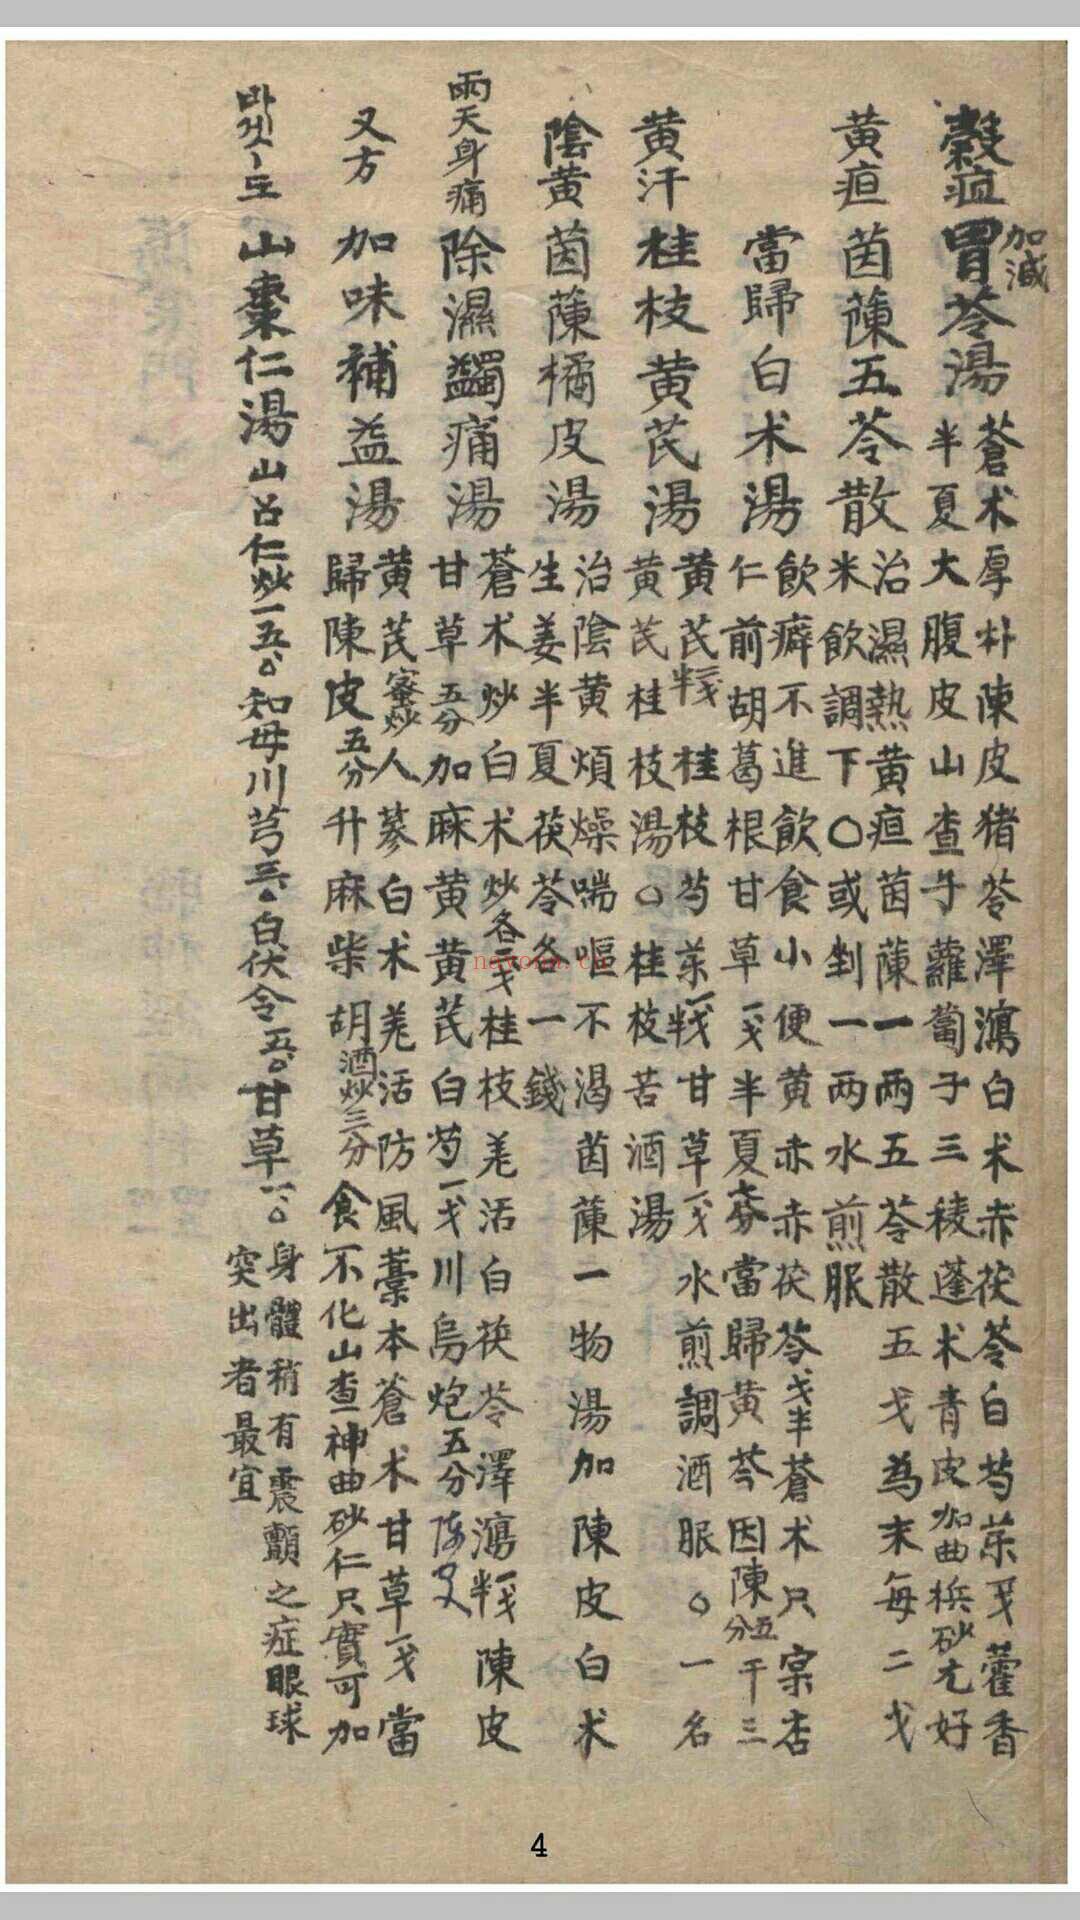 穀疸 加減胃苓湯 蒼术厚朴陳皮猪苓澤瀉白术赤茯苓白芍茱戔藿香
半夏大腹皮山查子蘿蔔子三稜蓬术青皮加曲梹砂尤好
黄疸 茵蔯五苓散 治濕熱黄疸茵蔯一兩五苓散五戔為末每二戔
米飲調下○或剉一兩水煎服
當歸白术湯 飲癖不進飲食小便黄赤赤茯苓戔半蒼术只宗杏
仁前胡葛根甘草戔半夏 當歸黄芩因陳五分干三
黄汗 桂枝黄芪湯 黄芪 桂枝芍茱 甘草戔水煎調酒服○一名
黄芪桂枝湯○桂枝苦酒湯
陰黄 茵蔯橘皮湯 治陰黄煩燥喘嘔不渴茵蔯一物湯加陳皮白术
生姜半夏茯苓各一錢
兩天身痛 除濕蠲痛湯 蒼术炒白术炒各戔桂枝羌活白茯苓澤瀉 陳皮
甘草五分加麻黄黄芪白芍一戔川烏炮五分
又方 加味補益湯 黄芪蜜炒人蔘白术羌活防風藁本蒼术甘草一戔當
歸陳皮五分升麻柴胡酒炒三分食不化山查神曲砂仁只實可加
山棗仁湯 山 仁炒一五○知母川芎三○白伏令五○甘草一○ 身體稍有震顫之症眼球
突出者最宜
nayona.cn
4